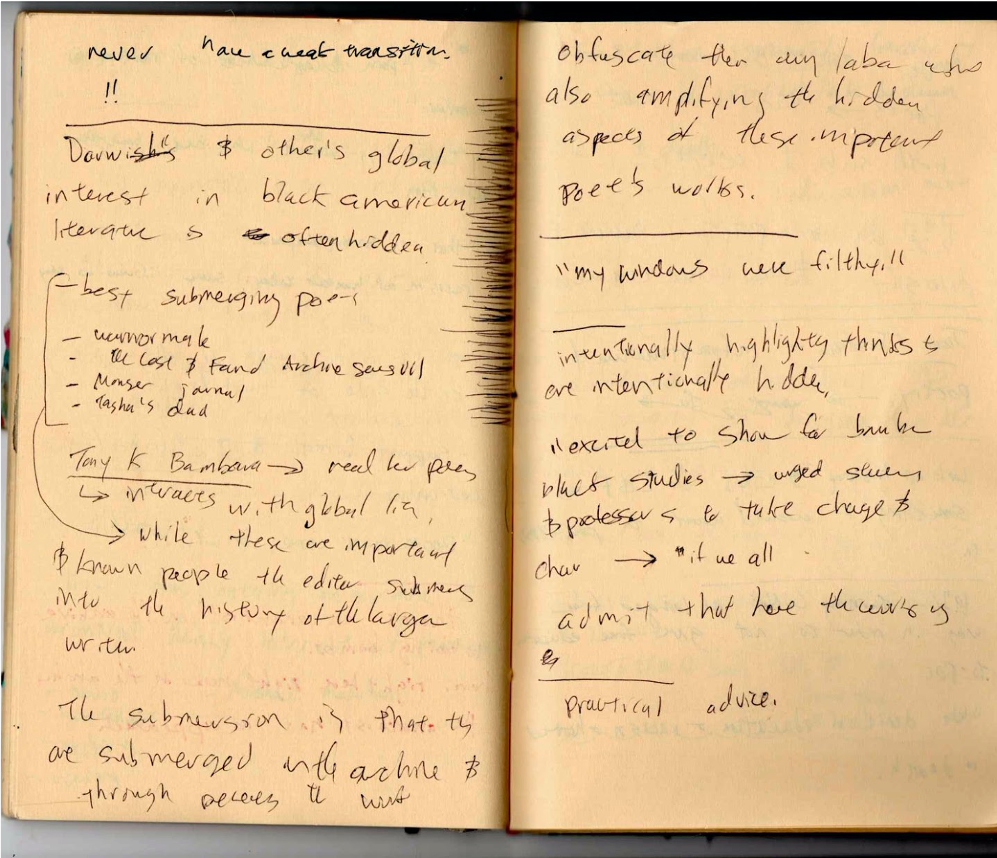 never have a weak transition.
!!
Darwish's $ other's global
interest in black american
literature is often hidden.
best submerging poets
-
- the Lost $ Found Archive
- journal
- Tasha's dad
Tony K Bambara → read her
↳ interacts with global
→ while these are important
$ known people the editor submerg
into the history of the larger
writer
The submersion is that they
are submerged in the archive $
through the
obfuscate their own who
also amplifying the hidden
aspects of these important
poet's works.
"my windows were filthy."
intentionally highlighty things
are intentionally hidden,
"excited to show
black studies → urged
$ professors to take charge $
→ "if we all
admit that have
practical advice.